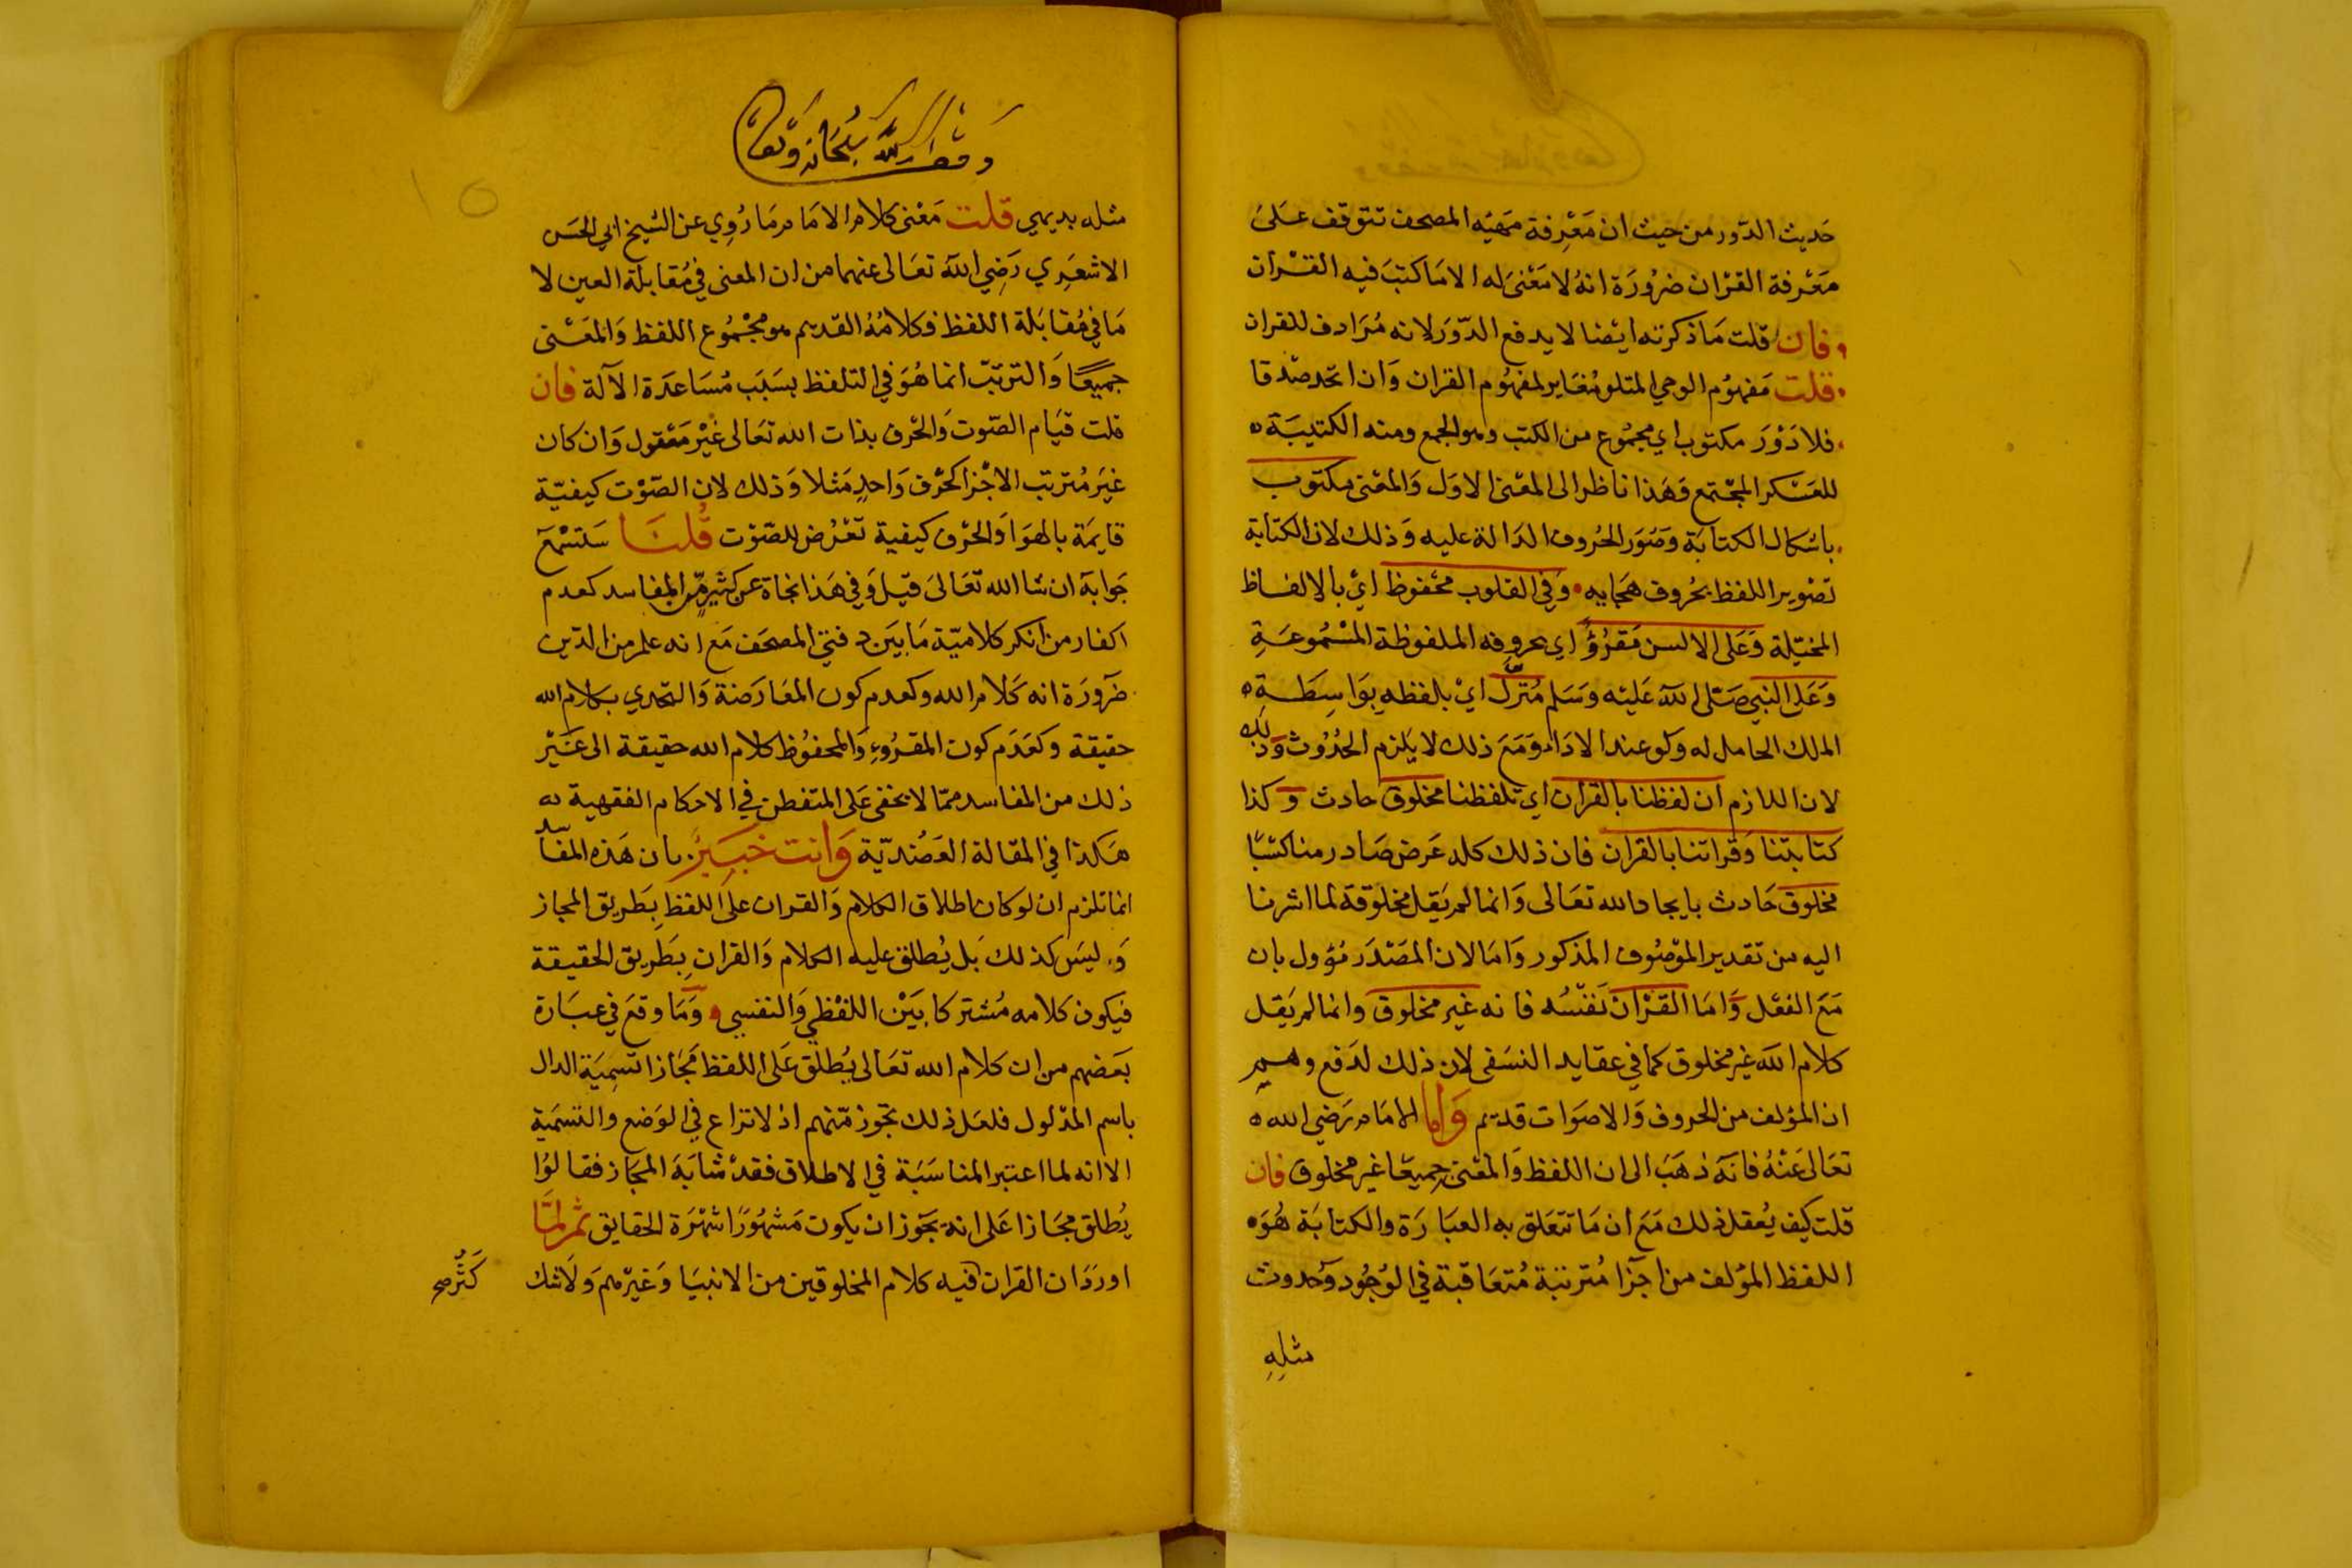 حَديث الدّور من حيث ان مَعْرِفة مَهيَه المصحف تتوقف عَلىَ
مَعْرفة القرْان ضرُورَة انهُ لا مَعْنىَ له الا مَا كتبَ فيه القرْان
فان قلت مَا ذكرته ايْضا لا يدفع الدّوَر لانه مُرَادف للقران
قلت مَفهوُم الوحي المتلو مُغَاير لمفهوُم القران وَان اتحد صدْقا
فلا دَوْرَ مكتوب اي مجمُوع من الكتب وهو الجمع ومنه الكتيبَة
للعَسْكر المجْتمع وَهَذا ناظر الى المعْنى الاوَل وَالمعْنى مكتوب
باشكال الكتابَة وَصُوَر الحُروف الدَالة عليه وَذلك لان الكتابَة
تصْوير اللفظ بحُروف هجَايه وَفي القلوب محْفوظ ايْ بالالفاظ
المخيّلة وَعَلى الالسن مَقرُؤٌ اي بحروفه الملفوظة المسْمُوعَةِ
وَعَلى النبي صَلى اللهَ عَليْه وَسَلم مُنَزّل ايْ بلفظه بوَاسِطَة
الملك الحامل له وَلو عند الادَاء وَمَعَ ذلك لا يَلزم الحُدُوث وَذلك
لان اللازم ان لفظنا بالقران اي تلفظنا مخلوق حادث وَكذا
كتابتنا وَقراتنا بالقران فان ذلك كله عَرض صَادر منا كسْبًا
مخلوق حَادث بايجاد الله تعَالى وَانما لم يَقل مخلوقة لما اشرنا
اليه من تقدير الموْصُوف المذكور وَامَا لان المصْدَر مُؤول بان
مَعَ الفعْل وَامَا القرْان نَفْسُه فانه غير مخلوق وانما لم يَقل
كلام اللهَ غيْر مخلوق كما في عقايد النسَفى لان ذلك لدَفع وهم
ان المؤلف من الحروف وَالاصوَات قديم وَاما الامَام رَضي الله
تعَالى عَنْهُ فانهَ ذهَبَ الى ان اللفظ وَالمعْنى جميعًا غير مخلوق فان
قلت كيف يُعقل ذلك مَعَ ان مَا تتعَلق به العبَارَة والكتابَة هُوَ
اللفظ المؤلف من اجزَا مُترتبة مُتعَاقبة في الوُجُود وَحُدوث
مثلِهِ
وقف لله سبحانه وتعالى
١٥
مثله بديهي قلت مَعْنى كلام الامَام مَا رُوِي عن الشيخ ابي الحسَن
الاشعَرِي رَضِي اللهَ تعَالى عنهما من ان المعنى في مُقابلة العين لا
مَا في مُقابَلة اللفظ فكلامُهُ القديم هو مجْمُوع اللفظ وَالمعَنْى
جميعًا وَالترتبّ انما هُوَ في التلفظ بسَبَب مُسَاعَدَة الآلة فان
قلت قيَام الصّوت وَالحْرف بذات الله تعَالى غيْر مَعْقول وَان كان
غيَر مُترتب الاجْزا كحْرف وَاحدٍ مَثلا وَذلك لان الصّوْت كيفيّة
قايمَة بالهوَا وَالحرْف كيفية تعْرُض للصّوْت قُلنَا سَتسْمَعَ
جَوابهَ ان شا الله تعَالىَ قيْل وَفي هَذا نجاة عن كثير من المفاسد كعدم
اكفار من انكر كلاميّة مَا بَين دفتي المصحَف مَع انه علم من الدّين
ضَرورَة انه كَلام الله وكعدم كون المعَارَضة وَالتحدي بكلام الله
حقيقة وكعَدَم كون المقرُوءِ وَالمحفوُظ كلام الله حقيقة الى غيَرْ
ذلك من المفاسد ممّا لا يخفى عَلى المتفطن في الاحكام الفقهية
هَكذا في المقالة العَضُديّة وَانت خَبيَرٌ بان هَذه المفاسد
انما تلزم ان لو كان اطلاق الكلام وَالقران على اللفظ بِطَريق المجاز
وَليسَ كذلك بَل يُطلق عليه الكلام وَالقران بِطَريق الحقيقة
فيكون كلامه مُشتركا بَيَنْ اللفْظِي وَالنفسِي وَمَا وقعَ في عبَارة
بعَضهم من ان كلام الله تعَالى يُطلق عَلى اللفظ مَجَازا تسمِيَة الدال
باسم المدْلول فلعَل ذلك تجوّز مّنهم اذ لا نزاع في الوَضع والتسمَيَة
الا انه لما اعتبر المناسَبَة في الاطلاق فقدْ شابَهَ المجَاز فقالوُا
يُطلق مجَازا عَلى انه يَجوز ان يكون مَشهُورًا شهْرَة الحقايق ثم لمَّا
اورَدَ ان القران فيه كلام المخلوقين من الانبيَا وَغيْرهم وَلا شك
كَثُر صح